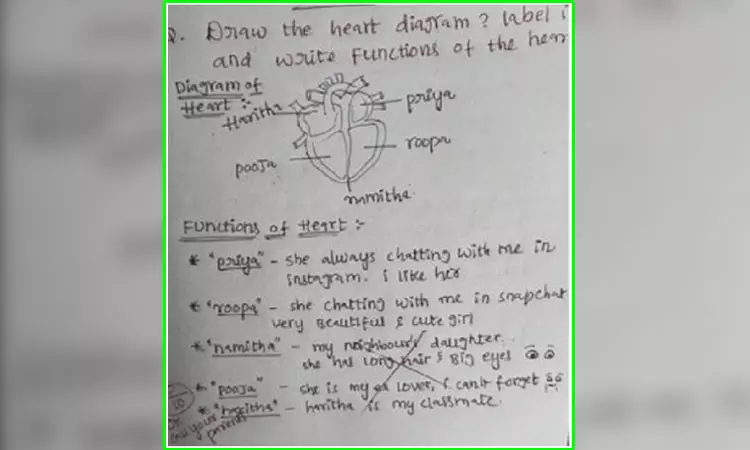 Q. Draw the heart diagram? label i
and write Functions of the hear
Diagram of
Heart :-
Haritha
priya
pooja
roopa
namitha
Functions of Heart :-
* "priya" - she always chatting with me in
instagram. i like her
* "roopa" - she chatting with me in snapchat
very Beautiful & cute girl
* "namitha" - my neighbour's daughter.
she has long hair & Big eyes
* "pooja" - she is my ex lover, i can't forget
* "haritha" - haritha is my classmate.
10
your
parents